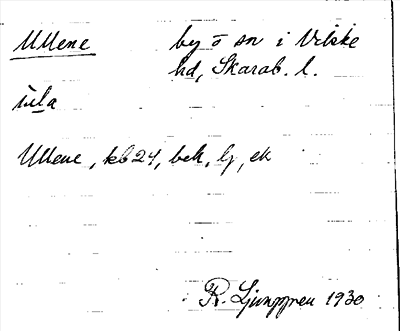 Ullene by o sn i Vilske
hd, Skarab. l.
Ullene, kb 24, bek, lj, ek
R. Ljunggren 1930